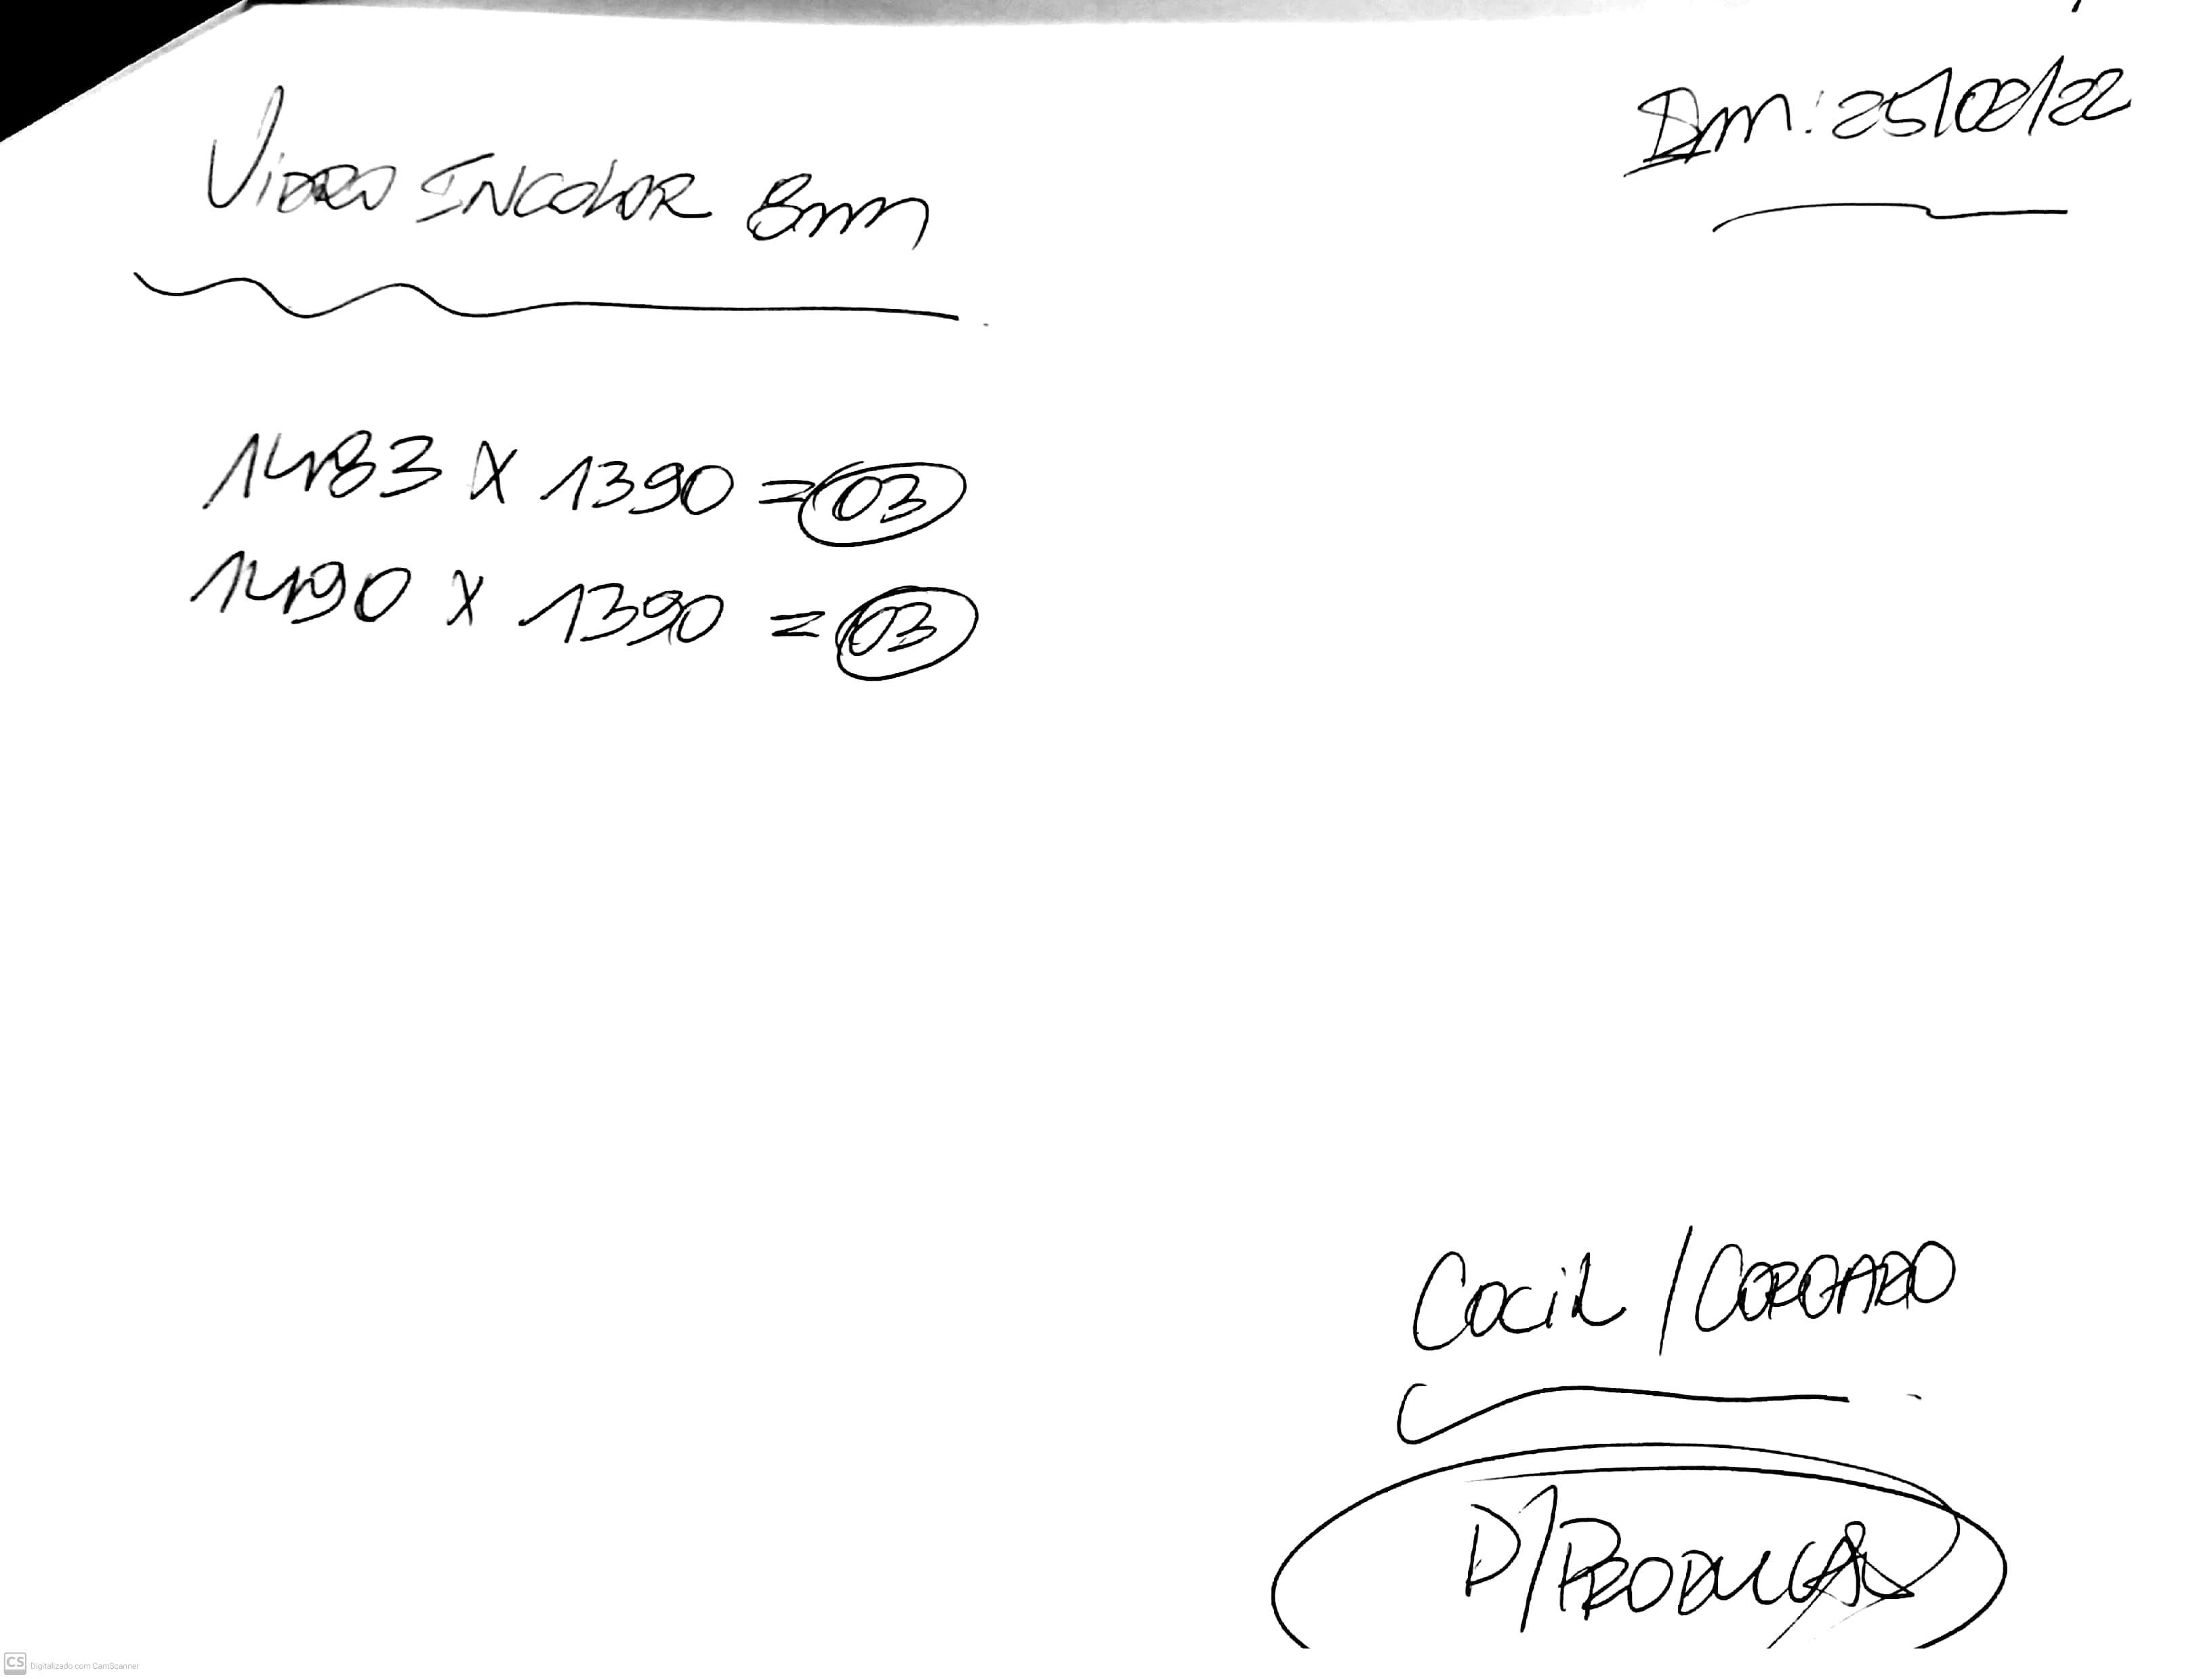 Dm: 25/02/22
VIDRO INCOLOR 8mm
1483 X 1390 = 03
1490 X 1390 = 03
Cocil /
P/PRODUÇÃO
CS Digitalizado com CamScanner